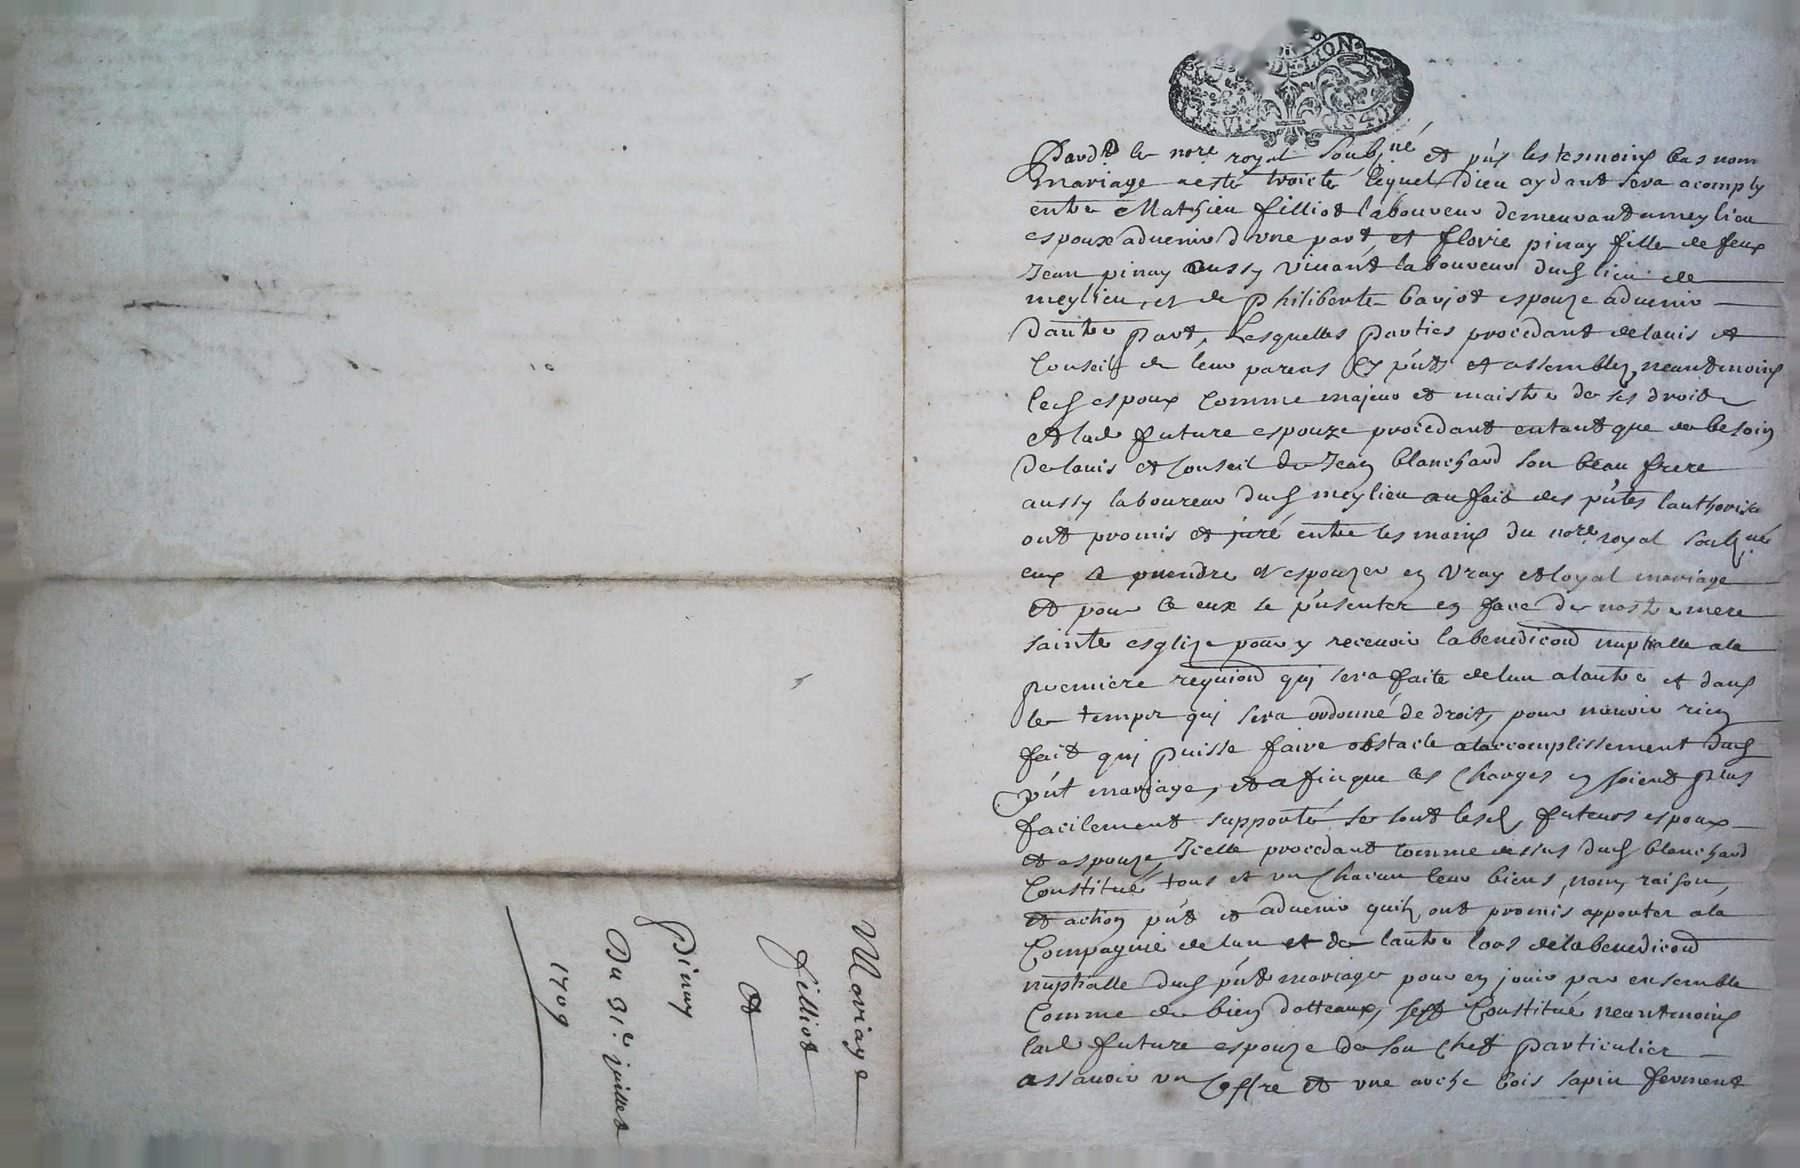 Mariage
filliot
et
pinay
Du 31e juillet
1709
DE LION
SIX S 4 D
Pardt le nore royal soubzné et pñs les tesmoins bas nom
mariage a esté traicté lequel Dieu aydant sera acomply
entre Mathieu filliot laboureur demeurant a meylieu
espoux aduenir d vne part, et florie pinay fille de feux
Jean pinay aussy viuant laboureur dud lieu de
meylieu, et de philiberte barjot espouze aduenir
dautre part, Lesquelles parties procedant de lauis et
Conseil de leur parens Cy pñts et assemblez, neantmoins
led espoux Comme majeur et maistre de ses droits
et lad future espouze procedant entant que de besoin
de lauis et Conseil de Jean blanchard son beau frere
aussy laboureur dud meylieu au fait des pñtes lauthorisa
ont promis et juré entre les mains du nore royal soubzné
eux se prendre et espouzer en vray et loyal mariage
et pour Ce eux se pñsenter en face de nostre mere
sainte esglize pour y receuoir la benediction nuptialle a la
premiere requiond qui sera faite de lun a lautre et dans
le temps qui sera ordonné de droit, pour nauoir rien
fait qui puisse faire obstacle a laccomplissement dud
pñt mariage, et afin que les Charges en soient plus
facilement supporté se sont lesd futeurs espoux
et espouze, Icelle procedant Comme dessus dud blanchard
Constitué tous et vn Chacun leur biens, nom, raison,
et action pñt et aduenir quilz ont promis apporter a la
Compagnie de lun et de lautre lors de la benedicond
nuptialle dud pñt mariage pour en jouir par ensemble
Comme de bien dotteaux, sest Constitué neantmoins
lad future espouze de son Chef particulier
assauoir vn Coffre et vne arche bois sapin fermant